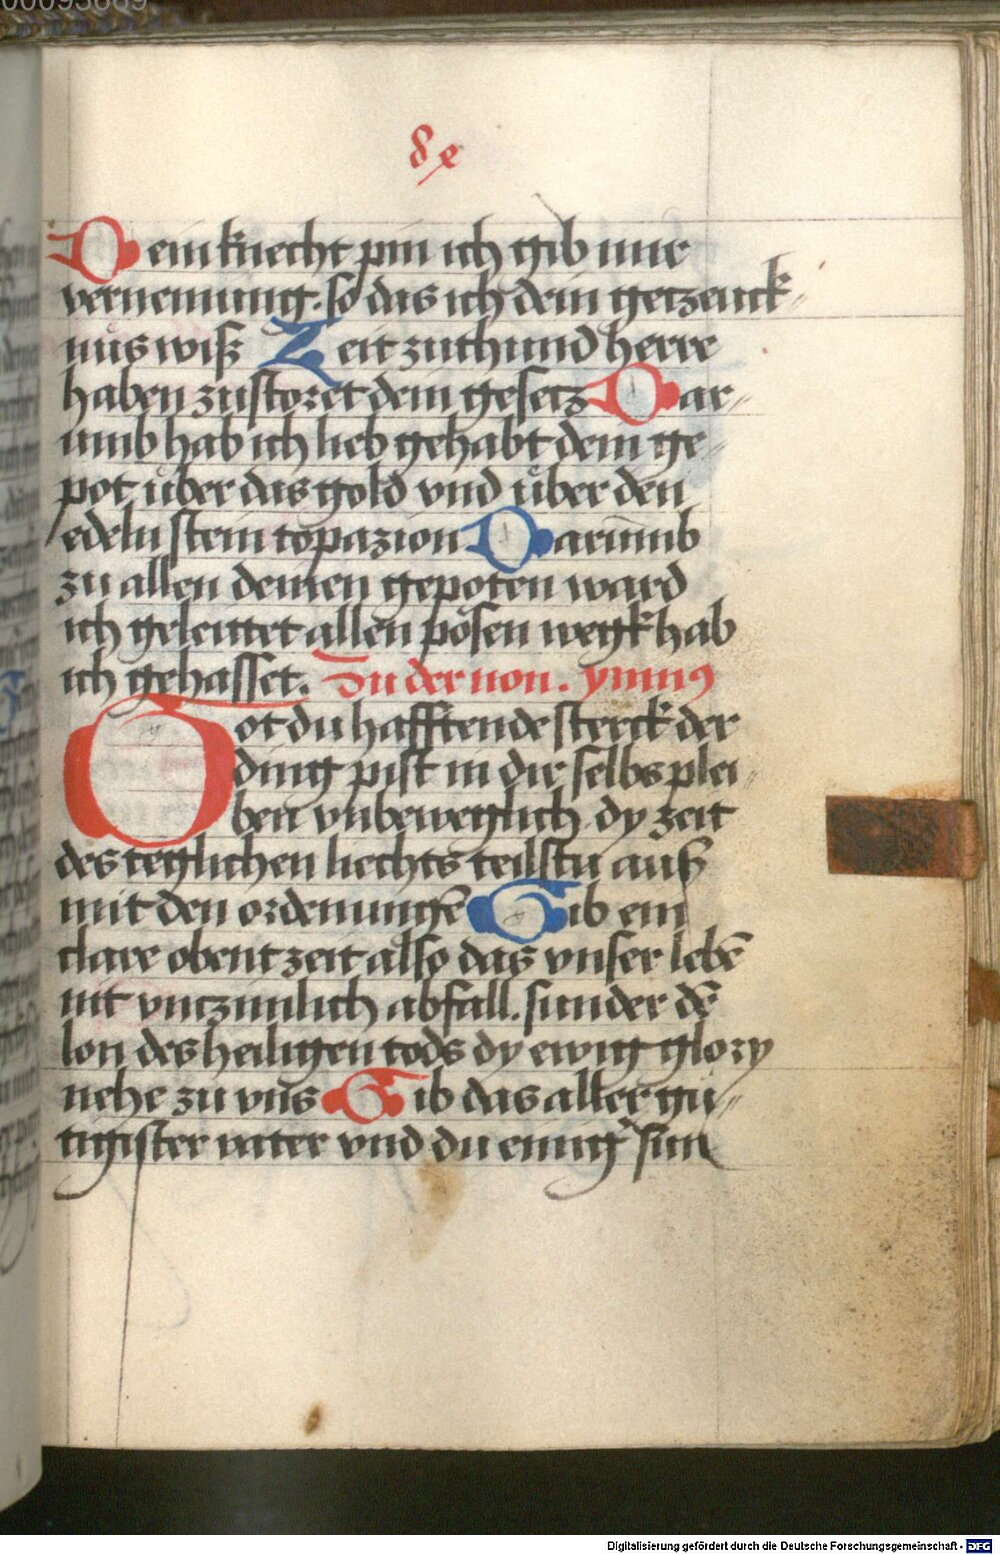 00093669
8e
Dein knecht pin ich gib mir
vernemung. so das ich dein getzeuck-
nus wiß Zeit zuthund herre
haben zustoret dein gesetz Dar-
umb hab ich lieb gehabt dein ge-
pot über das gold vnd über den
edeln stein topazion Darūmb
zu allen deinen gepoten ward
ich geleutet allen pösen wegk hab
ich gehasset. Zu der non. ymnus
Got du hafftende sterck der
ding pist in dir selbs plei-
ben vnbeweglich dy zeit
des teglichen liechts teilstu auß
mit den ordenungē Gib ein
clare obent zeit also das vnser lebē
nit vntzimlich abfall. sunder dē
lon des heiligen tods dy ewig glory
nehe zu vns Gib das aller gü-
tigister vater vnd du einig sun
Digitalisierung gefördert durch die Deutsche Forschungsgemeinschaft - DFG